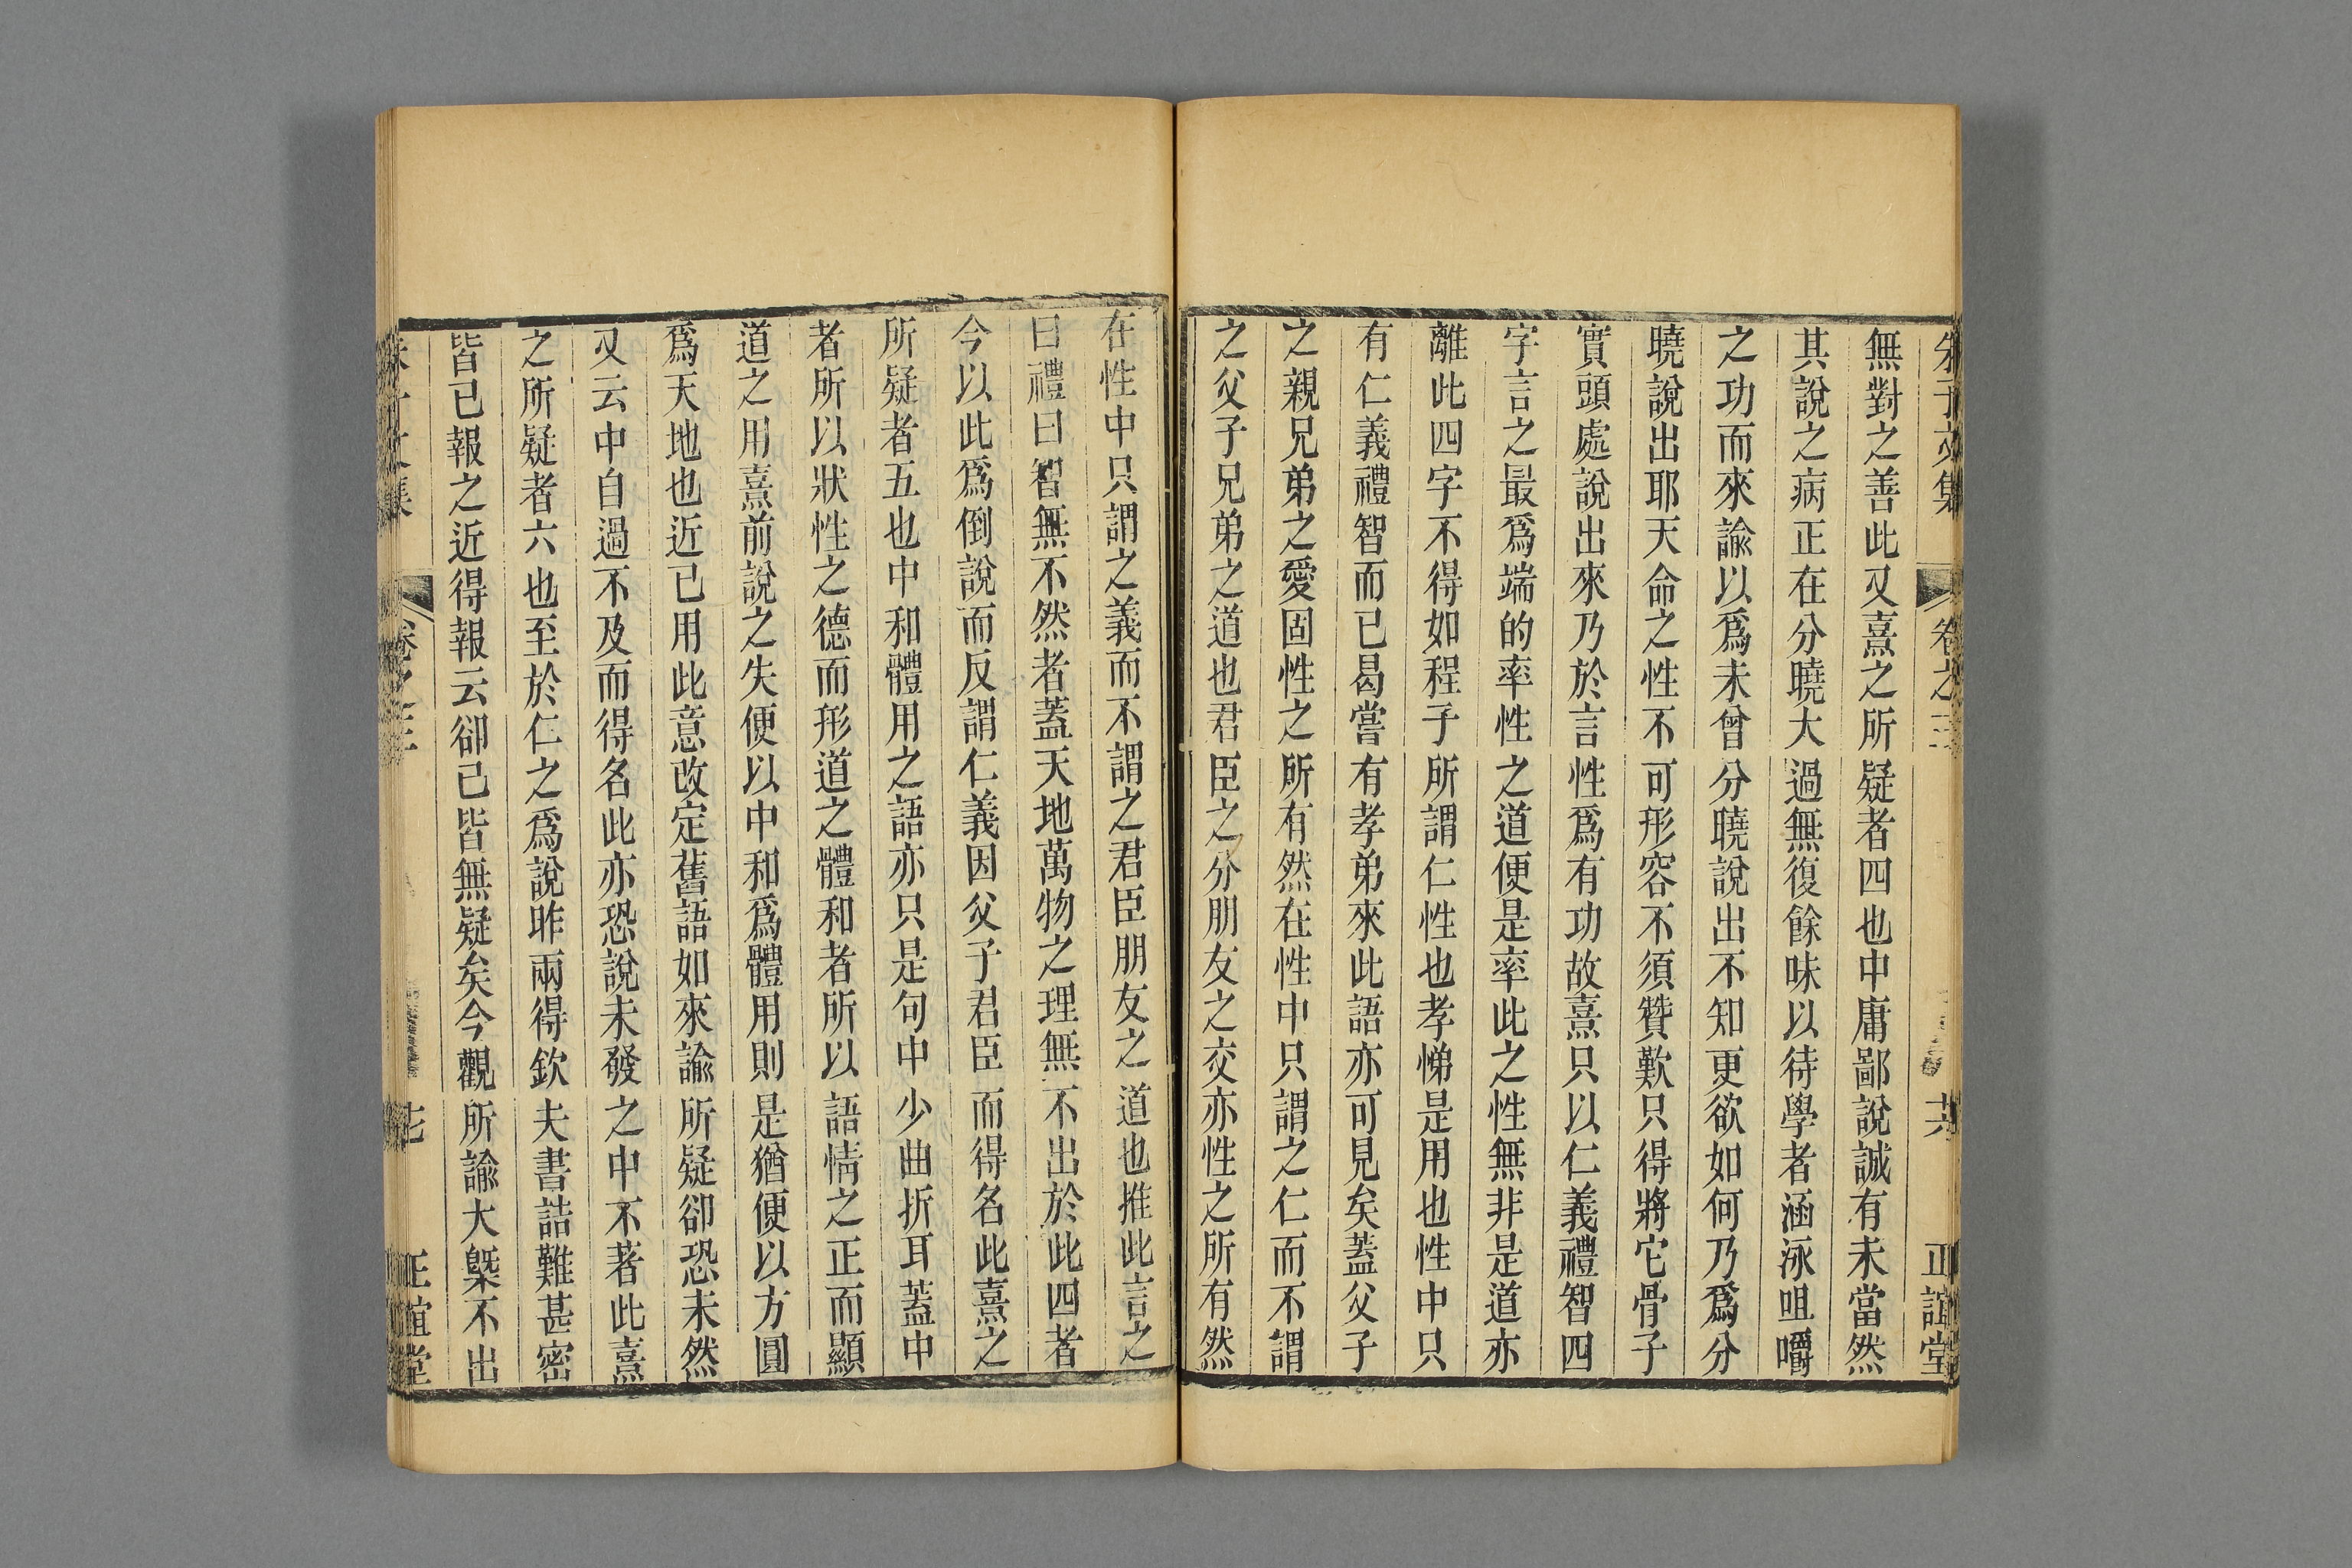 朱子文集 卷之三 共 正誼堂
無對之善此又熹之所疑者四也中庸鄙說誠有未當然
其說之病正在分曉大過無復餘味以待學者涵泳咀嚼
之功而來諭以爲未曾分曉說出不知更欲如何乃爲分
曉說出耶天命之性不可形容不須贊歎只得將它骨子
實頭處說出來乃於言性爲有功故熹只以仁義禮智四
字言之最爲端的率性之道便是率此之性無非是道亦
離此四字不得如程子所謂仁性也孝悌是用也性中只
有仁義禮智而已曷嘗有孝弟來此語亦可見矣蓋父子
之親兄弟之愛固性之所有然在性中只謂之仁而不謂
之父子兄弟之道也君臣之分朋友之交亦性之所有然
在性中只謂之義而不謂之君臣朋友之道也推此言之
曰禮曰智無不然者蓋天地萬物之理無不出於此四者
今以此爲倒說而反謂仁義因父子君臣而得名此熹之
所疑者五也中和體用之語亦只是句中少曲折耳蓋中
者所以狀性之德而形道之體和者所以語情之正而顯
道之用熹前說之失便以中和爲體用則是猶便以方圓
爲天地也近已用此意改定舊語如來諭所疑卻恐未然
又云中自過不及而得名此亦恐說未發之中不著此熹
之所疑者六也至於仁之爲說昨兩得欽夫書詰難甚密
皆已報之近得報云卻已皆無疑矣今觀所諭大槩不出
卷之三 七 正誼堂